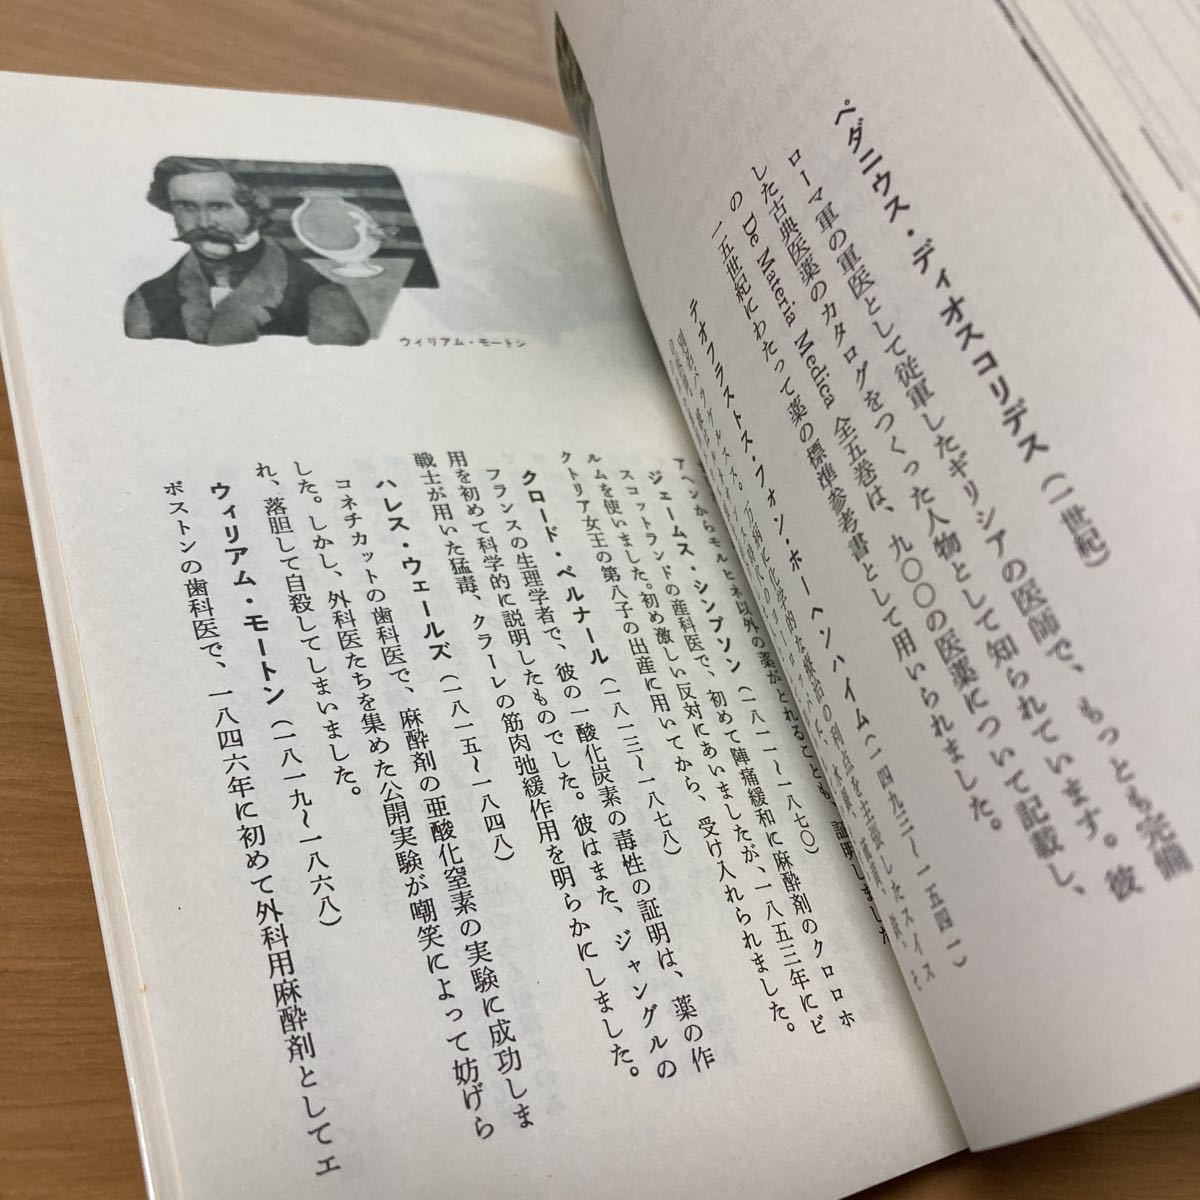 ペダニウス・ディオスコリデス（一世紀）
ローマ軍の軍医として従軍したギリシアの医師で、もっとも完備
した古典医薬のカタログをつくった人物として知られています。彼
の De Materia Medica 全五巻は、九〇〇の医薬について記載し、
一五世紀にわたって薬の標準参考書として用いられました。
テオフラストス・フォン・ホーヘンハイム（一四九三〜一五四一）
アヘンからモルヒネ以外の薬がとれることも、証明しました
ジェームス・シンプソン（一八一一〜一八七〇）
スコットランドの産科医で、初めて陣痛緩和に麻酔剤のクロロホ
ルムを使いました。初め激しい反対にあいましたが、一八五三年にビ
クトリア女王の第八子の出産に用いてから、受け入れられました。
クロード・ベルナール（一八一三〜一八七八）
フランスの生理学者で、彼の一酸化炭素の毒性の証明は、薬の作
用を初めて科学的に説明したものでした。彼はまた、ジャングルの
戦士が用いた猛毒、クラーレの筋肉弛緩作用を明らかにしました。
ハレス・ウェールズ（一八一五〜一八四八）
コネチカットの歯科医で、麻酔剤の亜酸化窒素の実験に成功しま
した。しかし、外科医たちを集めた公開実験が嘲笑によって妨げら
れ、落胆して自殺してしまいました。
ウィリアム・モートン（一八一九〜一八六八）
ボストンの歯科医で、一八四六年に初めて外科用麻酔剤としてエ
ウィリアム・モートン